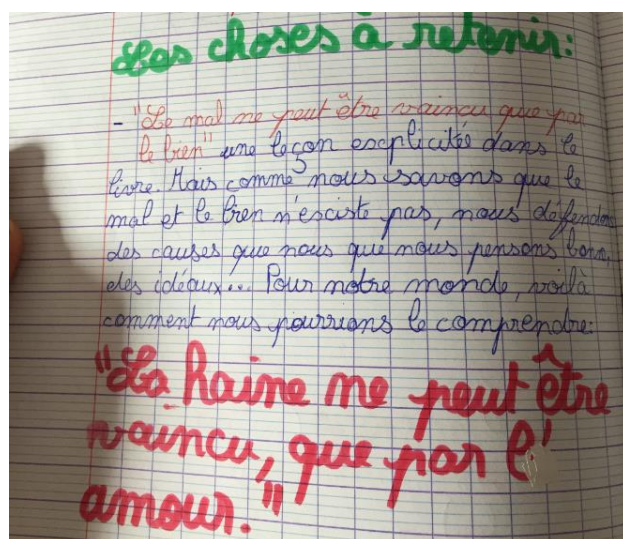 Les choses à retenir:
- "Le mal ne peut être vaincu que par
le bien" une leçon explicitée dans le
livre. Mais comme nous savons que le
mal et le bien n'esciste pas, nous défendons
des causes que nous que nous pensons bons,
des idéaux... Pour notre monde, voilà
comment nous pourrions le comprendre:
"La haine ne peut être
vaincu, que par l'
amour."